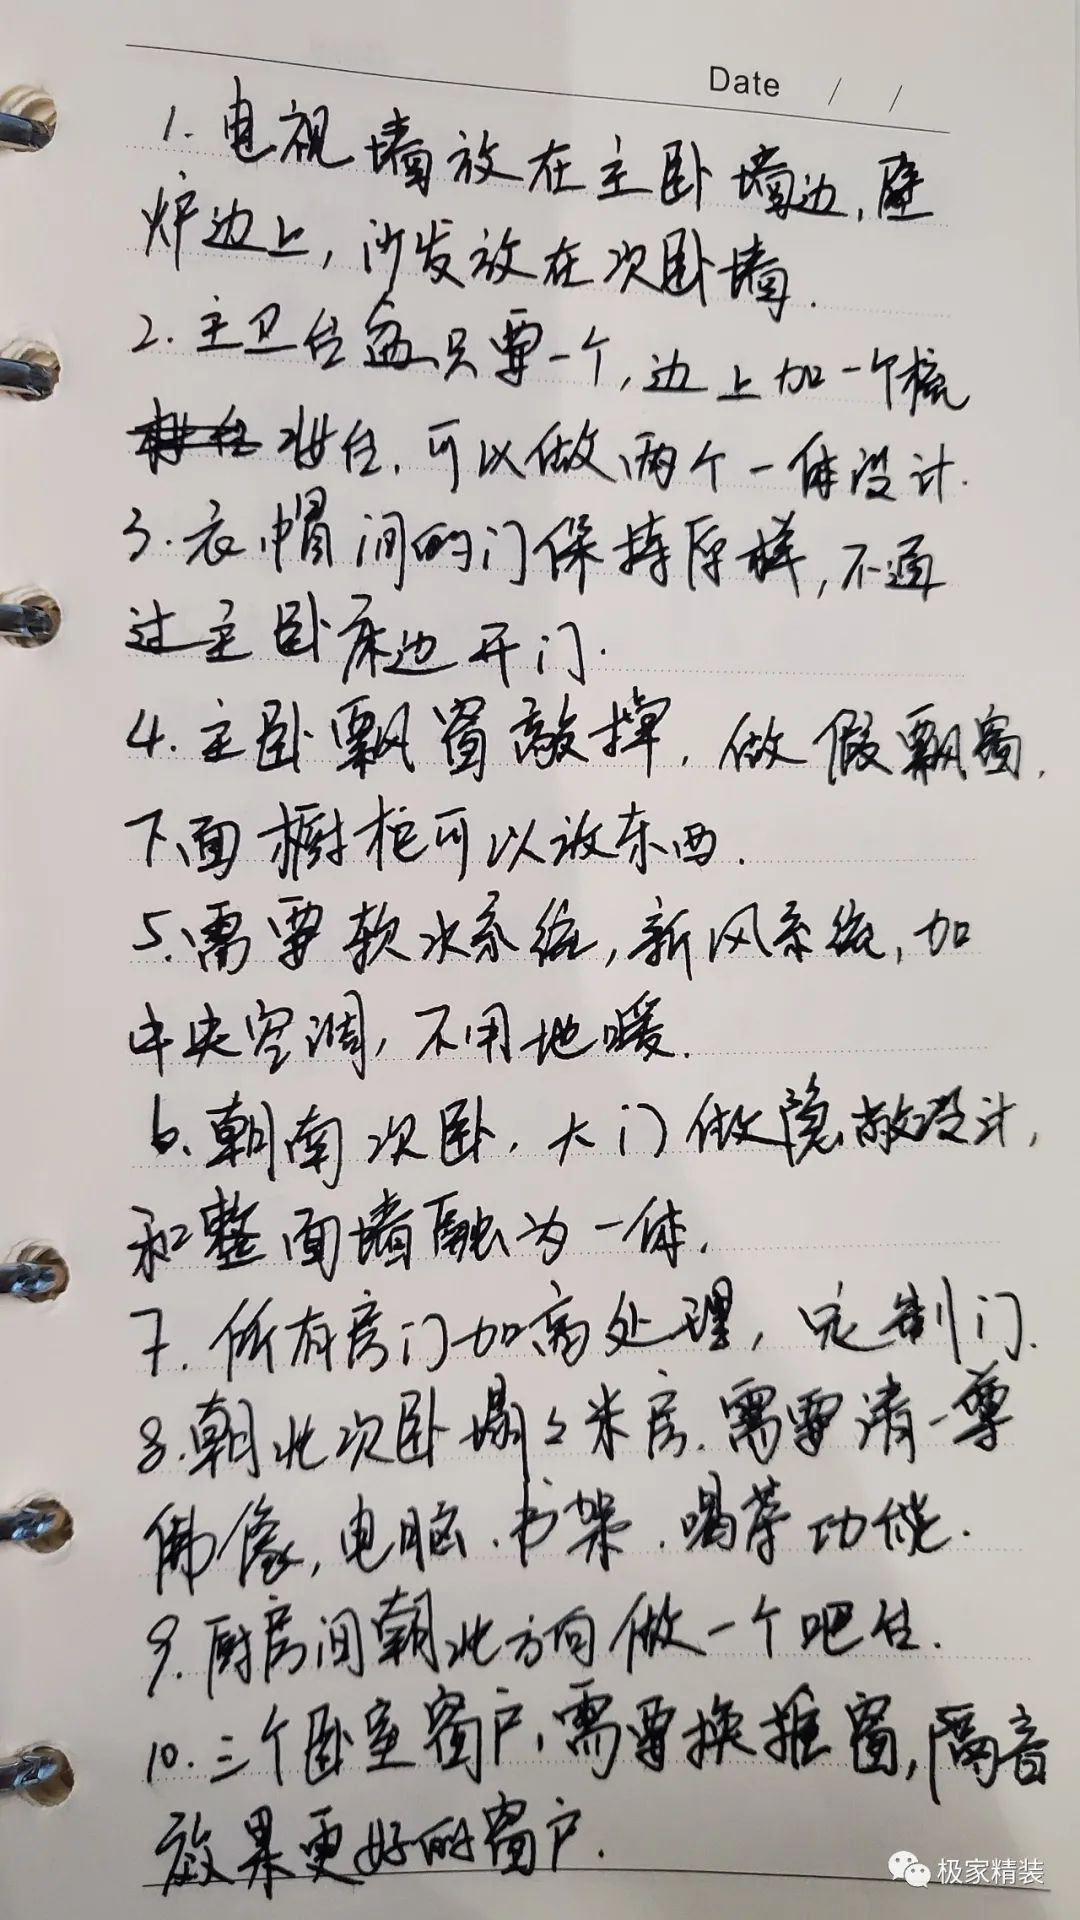 Date / /
1. 电视墙放在主卧墙边, 壁
炉边上, 沙发放在次卧墙.
2. 主卫台盆只要一个, 边上加一个梳
妆台, 可以做两个一体设计.
3. 衣帽间的门保持原样, 不通
过主卧床边开门.
4. 主卧飘窗敲掉, 做假飘窗,
下面橱柜可以放东西.
5. 需要软水系统, 新风系统, 加
中央空调, 不用地暖.
6. 朝南次卧, 大门做隐蔽设计,
和整面墙融为一体.
7. 所有房门加高处理, 定制门.
8. 朝北次卧榻榻米房. 需要请一尊
佛像, 电脑. 书架. 喝茶功能.
9. 厨房间朝北方向做一个吧台.
10. 三个卧室窗户, 需要换推窗, 隔音
效果更好的窗户.
极家精装